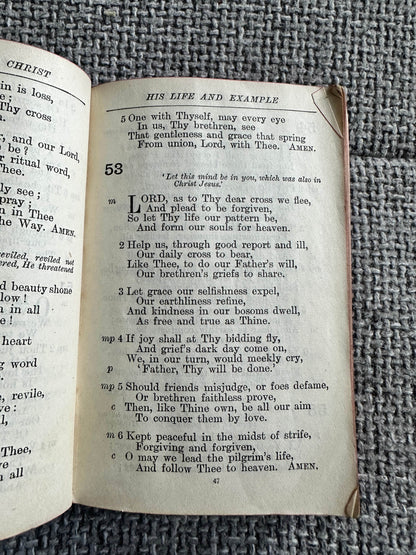 CHRIST
in is loss,
e ;
Thy cross
n.
r, and our Lord,
o be ?
r ritual word,
Thee.
ly see ;
pray ;
n in Thee
he Way. AMEN.
eviled, reviled not
ered, He threatened
d beauty shone
low !
n in all
e !
heart
g word
l.
, revile,
ve :
l
Thee,
e
n all
HIS LIFE AND EXAMPLE
5 One with Thyself, may every eye
In us, Thy brethren, see
That gentleness and grace that spring
From union, Lord, with Thee. AMEN.
53
'Let this mind be in you, which was also in
Christ Jesus.'
m LORD, as to Thy dear cross we flee,
And plead to be forgiven,
So let Thy life our pattern be,
And form our souls for heaven.
2 Help us, through good report and ill,
Our daily cross to bear,
Like Thee, to do our Father's will,
Our brethren's griefs to share.
3 Let grace our selfishness expel,
Our earthliness refine,
And kindness in our bosoms dwell,
As free and true as Thine.
mp 4 If joy shall at Thy bidding fly,
And grief's dark day come on,
We, in our turn, would meekly cry,
p 'Father, Thy will be done.'
mp 5 Should friends misjudge, or foes defame,
Or brethren faithless prove,
c Then, like Thine own, be all our aim
To conquer them by love.
m 6 Kept peaceful in the midst of strife,
Forgiving and forgiven,
c O may we lead the pilgrim's life,
And follow Thee to heaven. AMEN.
47